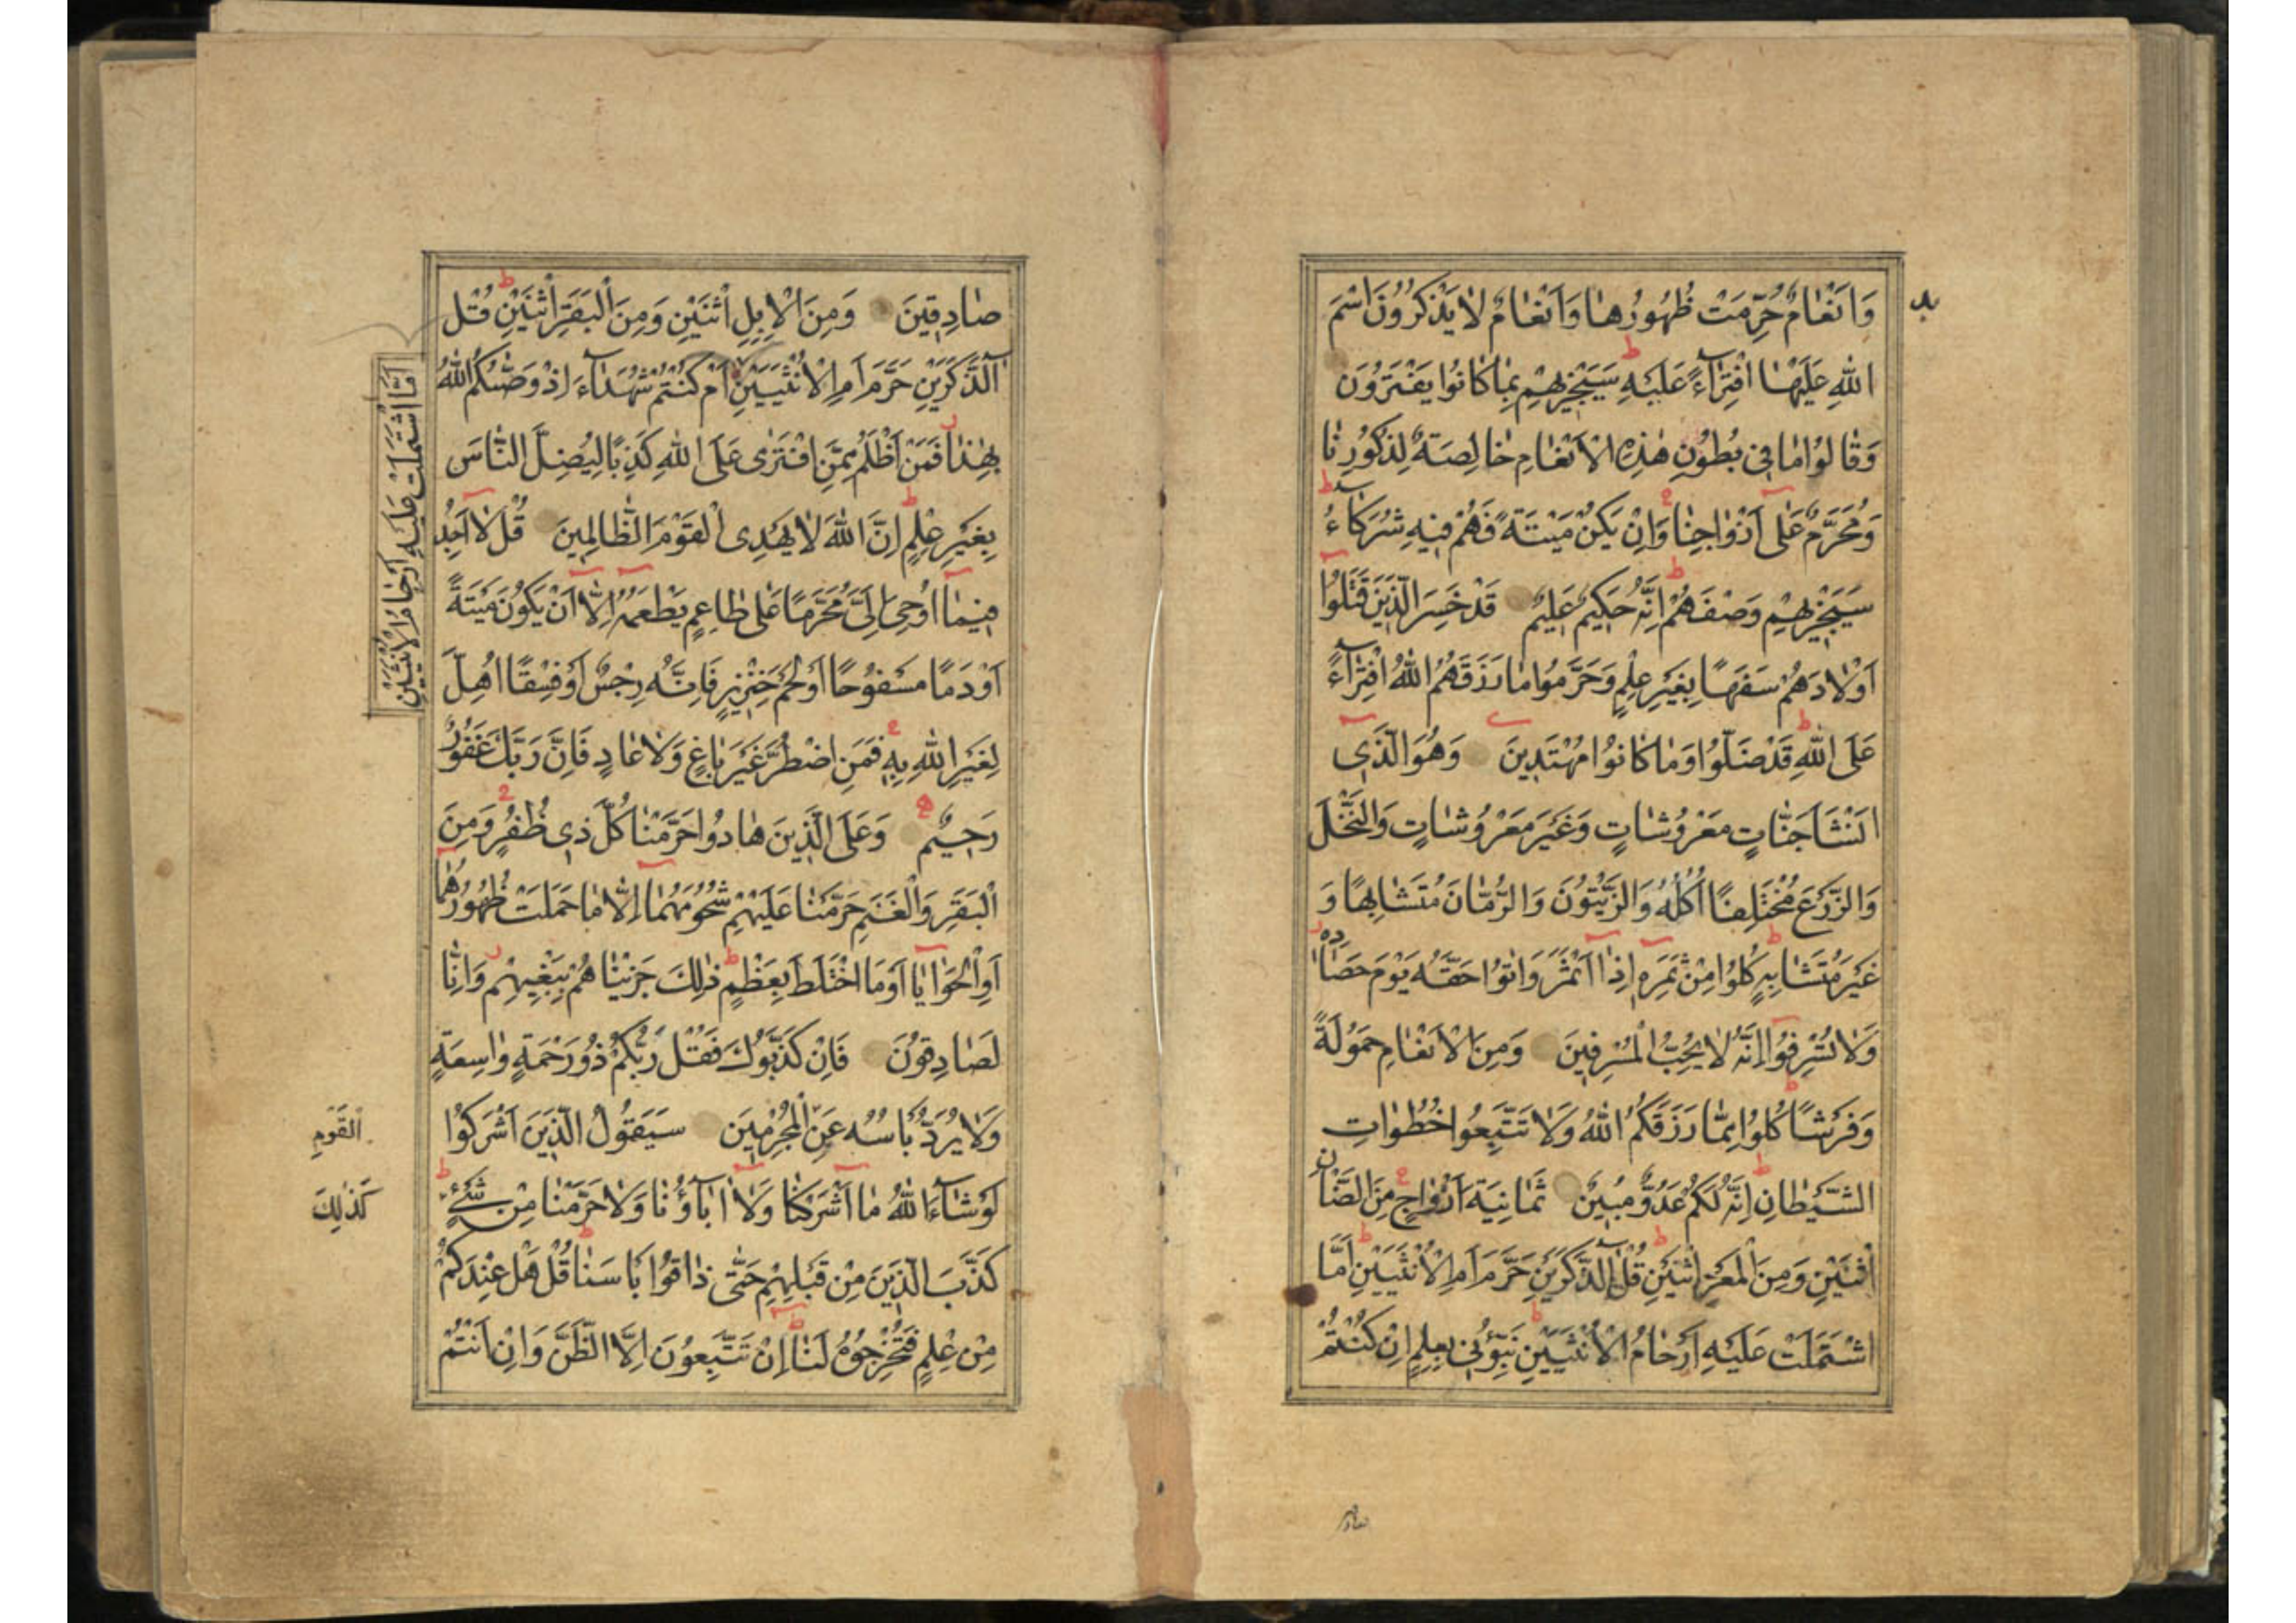 وَاَنْعَامٌ حُرِّمَتْ ظُهُورُهَا وَاَنْعَامٌ لَا يَذْكُرُونَ اسْمَ
اللّٰهِ عَلَيْهَا افْتِرَآءً عَلَيْهِ سَيَجْزِيهِمْ بِمَا كَانُوا يَفْتَرُونَ
وَقَالُوا مَا فِي بُطُونِ هٰذِهِ الْاَنْعَامِ خَالِصَةٌ لِذُكُورِنَا
وَمُحَرَّمٌ عَلٰى اَزْوَاجِنَا وَاِنْ يَكُنْ مَيْتَةً فَهُمْ فِيهِ شُرَكَآءُ
سَيَجْزِيهِمْ وَصْفَهُمْ اِنَّهُ حَكِيمٌ عَلِيمٌ قَدْ خَسِرَ الَّذِينَ قَتَلُوا
اَوْلَادَهُمْ سَفَهًا بِغَيْرِ عِلْمٍ وَحَرَّمُوا مَا رَزَقَهُمُ اللّٰهُ افْتِرَآءً
عَلَى اللّٰهِ قَدْ ضَلُّوا وَمَا كَانُوا مُهْتَدِينَ وَهُوَ الَّذِي
اَنْشَاَ جَنَّاتٍ مَعْرُوشَاتٍ وَغَيْرَ مَعْرُوشَاتٍ وَالنَّخْلَ
وَالزَّرْعَ مُخْتَلِفًا اُكُلُهُ وَالزَّيْتُونَ وَالرُّمَّانَ مُتَشَابِهًا وَ
غَيْرَ مُتَشَابِهٍ كُلُوا مِنْ ثَمَرِهِ اِذَا اَثْمَرَ وَاٰتُوا حَقَّهُ يَوْمَ حَصَادِهِ
وَلَا تُسْرِفُوا اِنَّهُ لَا يُحِبُّ الْمُسْرِفِينَ وَمِنَ الْاَنْعَامِ حَمُولَةً
وَفَرْشًا كُلُوا مِمَّا رَزَقَكُمُ اللّٰهُ وَلَا تَتَّبِعُوا خُطُوَاتِ
الشَّيْطَانِ اِنَّهُ لَكُمْ عَدُوٌّ مُبِينٌ ثَمَانِيَةَ اَزْوَاجٍ مِنَ الضَّاْنِ
اثْنَيْنِ وَمِنَ الْمَعْزِ اثْنَيْنِ قُلْ آلذَّكَرَيْنِ حَرَّمَ اَمِ الْاُنْثَيَيْنِ اَمَّا
اشْتَمَلَتْ عَلَيْهِ اَرْحَامُ الْاُنْثَيَيْنِ نَبِّؤُنِي بِعِلْمٍ اِنْ كُنْتُمْ
صَادِقِينَ وَمِنَ الْاِبِلِ اثْنَيْنِ وَمِنَ الْبَقَرِ اثْنَيْنِ قُلْ
آلذَّكَرَيْنِ حَرَّمَ اَمِ الْاُنْثَيَيْنِ اَمْ كُنْتُمْ شُهَدَآءَ اِذْ وَصّٰكُمُ اللّٰهُ
اَمَّا اشْتَمَلَتْ عَلَيْهِ اَرْحَامُ الْاُنْثَيَيْنِ
بِهٰذَا فَمَنْ اَظْلَمُ مِمَّنِ افْتَرٰى عَلَى اللّٰهِ كَذِبًا لِيُضِلَّ النَّاسَ
بِغَيْرِ عِلْمٍ اِنَّ اللّٰهَ لَا يَهْدِى الْقَوْمَ الظَّالِمِينَ قُلْ لَا اَجِدُ
فِيمَا اُوحِىَ اِلَىَّ مُحَرَّمًا عَلٰى طَاعِمٍ يَطْعَمُهُ اِلَّا اَنْ يَكُونَ مَيْتَةً
اَوْ دَمًا مَسْفُوحًا اَوْ لَحْمَ خِنْزِيرٍ فَاِنَّهُ رِجْسٌ اَوْ فِسْقًا اُهِلَّ
لِغَيْرِ اللّٰهِ بِهِ فَمَنِ اضْطُرَّ غَيْرَ بَاغٍ وَلَا عَادٍ فَاِنَّ رَبَّكَ غَفُورٌ
رَحِيمٌ وَعَلَى الَّذِينَ هَادُوا حَرَّمْنَا كُلَّ ذِي ظُفُرٍ وَمِنَ
الْبَقَرِ وَالْغَنَمِ حَرَّمْنَا عَلَيْهِمْ شُحُومَهُمَا اِلَّا مَا حَمَلَتْ ظُهُورُهُمَا
اَوِ الْحَوَايَا اَوْ مَا اخْتَلَطَ بِعَظْمٍ ذٰلِكَ جَزَيْنَاهُمْ بِبَغْيِهِمْ وَاِنَّا
لَصَادِقُونَ فَاِنْ كَذَّبُوكَ فَقُلْ رَبُّكُمْ ذُو رَحْمَةٍ وَاسِعَةٍ
وَلَا يُرَدُّ بَاْسُهُ عَنِ الْمُجْرِمِينَ سَيَقُولُ الَّذِينَ اَشْرَكُوا
الْقَوْمِ
لَوْ شَآءَ اللّٰهُ مَا اَشْرَكْنَا وَلَا اٰبَآؤُنَا وَلَا حَرَّمْنَا مِنْ شَيْءٍ
كَذٰلِكَ
كَذَّبَ الَّذِينَ مِنْ قَبْلِهِمْ حَتّٰى ذَاقُوا بَاْسَنَا قُلْ هَلْ عِنْدَكُمْ
مِنْ عِلْمٍ فَتُخْرِجُوهُ لَنَا اِنْ تَتَّبِعُونَ اِلَّا الظَّنَّ وَاِنْ اَنْتُمْ